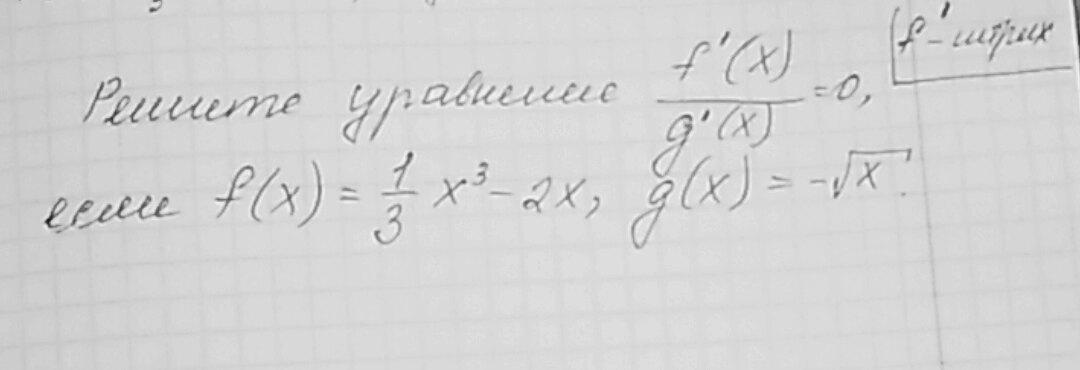 Решите уравнение f'(x)/g'(x) = 0,
f' - штрих
если f(x) = 1/3 x³ - 2x, g(x) = -√x.